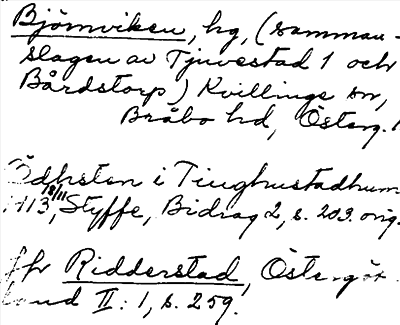 Björnviken, hg, (samman-
slagen av Tjuvestad 1 och
Bårdstorp) Kvillinge sn,
Bråbo hd, Österg.
Ödhsten i Tinghustadhum
1413 18/11, Styffe, Bidrag 2, s. 203. orig.
Jfr Ridderstad, Östergöt-
land II: 1, s. 259.